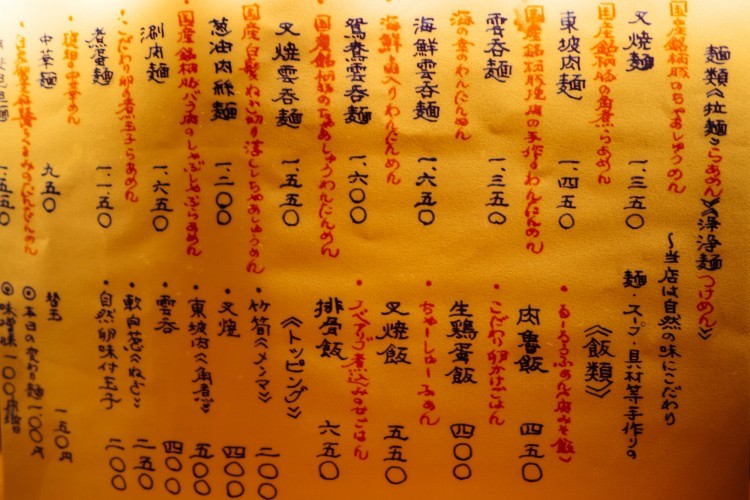 麺類《拉麺らあめん》《浄浄麺つけめん》
～当店は自然の味にこだわり
麺・スープ・具材等手作りの
国産銘柄豚ロちゃあしゅうめん
叉焼麺 一、三五〇
国産銘柄豚の角煮らあめん
東坡肉麺 一、四五〇
国産銘柄豚挽肉の手作りわんたんめん
雲呑麺 一、三五〇
海の幸のわんたんめん
海鮮雲呑麺 一、六五〇
海鮮わんたんめん
鴛鴦雲呑麺 一、六〇〇
国産銘柄豚のちゃあしゅうわんたんめん
叉焼雲呑麺 一、五五〇
国産白髪ねぎの落としちゃあしゅうめん
葱油肉絲麺 一、二〇〇
国産銘柄豚バラ肉のしゃぶしゃぶらあめん
涮肉麺 一、六五〇
こだわり卵の煮玉子らあめん
煮蛋麺 一、一五〇
中華麺 九五〇
《飯類》
るーろうふぁん《豚肉みそ飯》
肉魯飯 四五〇
こだわり卵かけごはん
生鶏蛋飯 四〇〇
ちゃーしゅーふぁん
叉焼飯 五五〇
スペアリブ煮込みのせごはん
排骨飯 六五〇
《トッピング》
竹筍《メンマ》 二〇〇
叉焼 四〇〇
東坡肉《角煮》 五〇〇
雲呑 四〇〇
軟白葱《ねぎ》 二五〇
自然卵味付玉子 二〇〇
替玉 一五〇円
◎本日の変わり麺 一〇〇円
◎味噌味 一〇〇円増